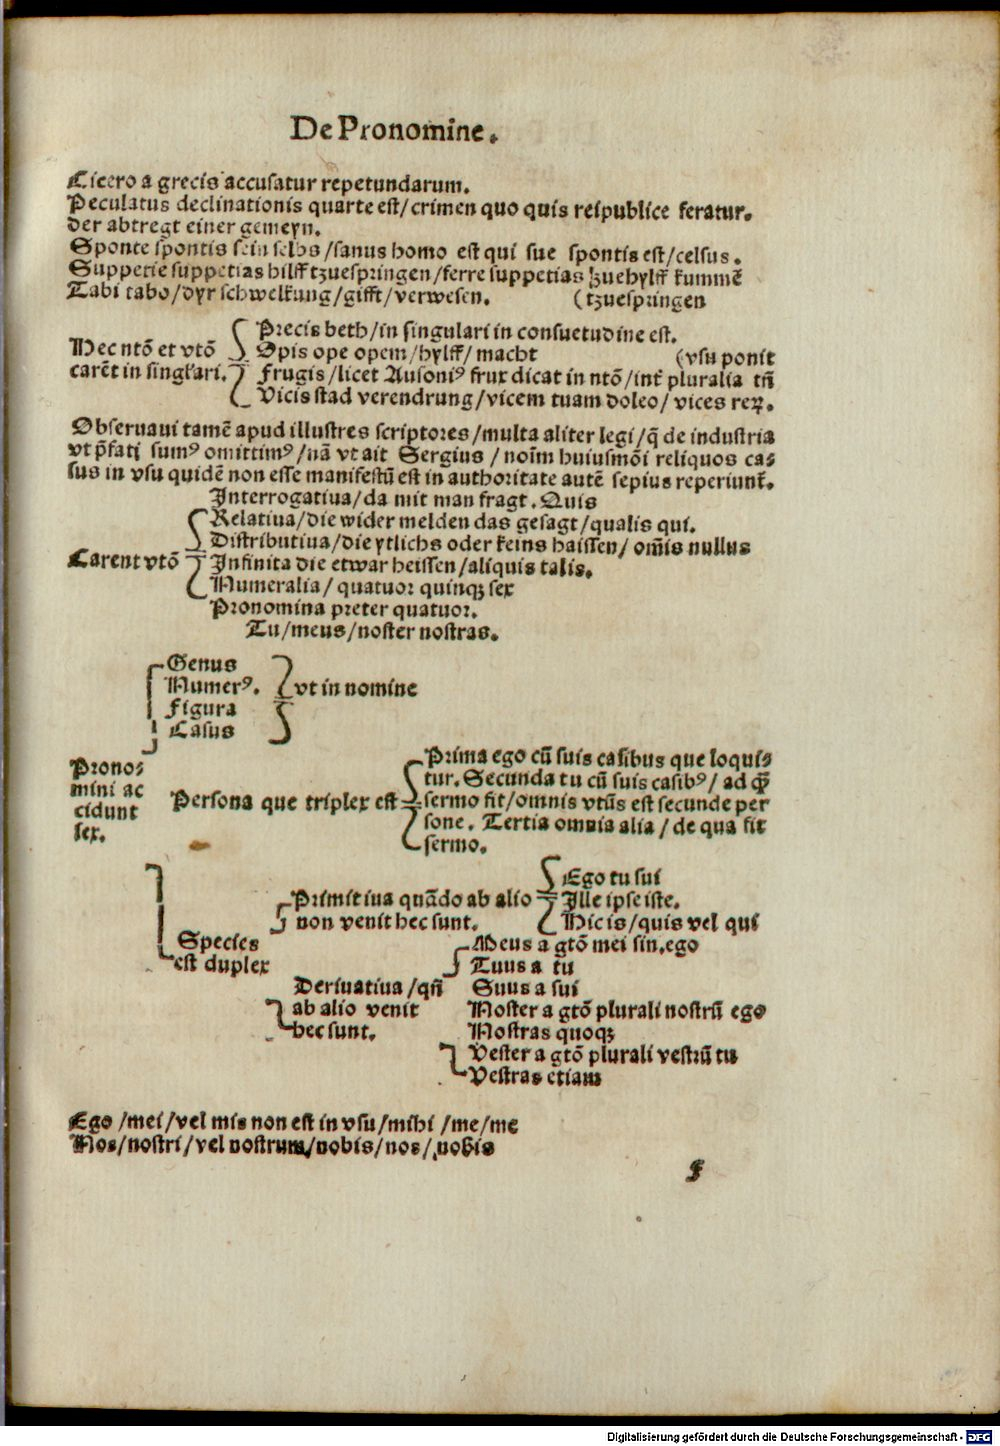 De Pronomine.
Cicero a grecis accusatur repetundarum.
Peculatus declinationis quarte est/crimen quo quis reipublice feratur.
der abtregt einer gemeyn.
Sponte spontis sein selbs/sanus homo est qui sue spontis est/celsus.
Suppetie suppetias hilff tzuespringen/ferre suppetias tzuehylff kummē
Tabi tabo/dyr schwelkung/gifft/verwesen. (tzuespringen
Precis beth/in singulari in consuetudine est.
Hec ntō et vtō Opis ope opem/hylff/macht (vsu ponit
carēt in singl'ari. Frugis/licet Ausoniꝰ frux dicat in ntō/int̄ pluralia tn̄
Vicis stad verendrung/vicem tuam doleo/vices reꝝ.
Obseruaui tamē apud illustres scriptores/multa aliter legi/q̄ de industria
vt p̄fati sumꝰ omittimꝰ/nā vt ait Sergius/noīm huiusmōi reliquos ca⸗
sus in vsu quidē non esse manifestū est in authoritate autē sepius reperiunt̄.
Interrogatiua/da mit man fragt. Quis
Relatiua/die wider melden das gesagt/qualis qui.
Distributiua/die ytlichs oder keins haissen/om̄is nullus
Carent vtō Infinita die etwar heissen/aliquis talis.
Numeralia/quatuor quinqꝫ sex
Pronomina preter quatuor.
Tu/meus/noster nostras.
Genus
Numerꝰ. vt in nomine
Figura
Casus
Prono⸗
mini ac
cidunt
sex.
Persona que triplex est
Prima ego cū suis casibus que loqui⸗
tur. Secunda tu cū suis casibꝰ/ad quē
sermo fit/omnis vtūs est secunde per
sone. Tertia omnia alia/de qua fit
sermo.
Species
est duplex
Primitiua quādo ab alio
non venit hec sunt.
Ego tu sui
Ille ipse iste.
Hic is/quis vel qui
Deriuatiua/qn̄
ab alio venit
hec sunt.
Meus a gtō mei sin. ego
Tuus a tu
Suus a sui
Noster a gtō plurali nostrū ego
Nostras quoqꝫ
Vester a gtō plurali vestrū tu
Vestras etiam
Ego/mei/vel mis non est in vsu/mihi/me/me
Nos/nostri/vel nostrum/nobis/nos/nobis
f
Digitalisierung gefördert durch die Deutsche Forschungsgemeinschaft - DFG